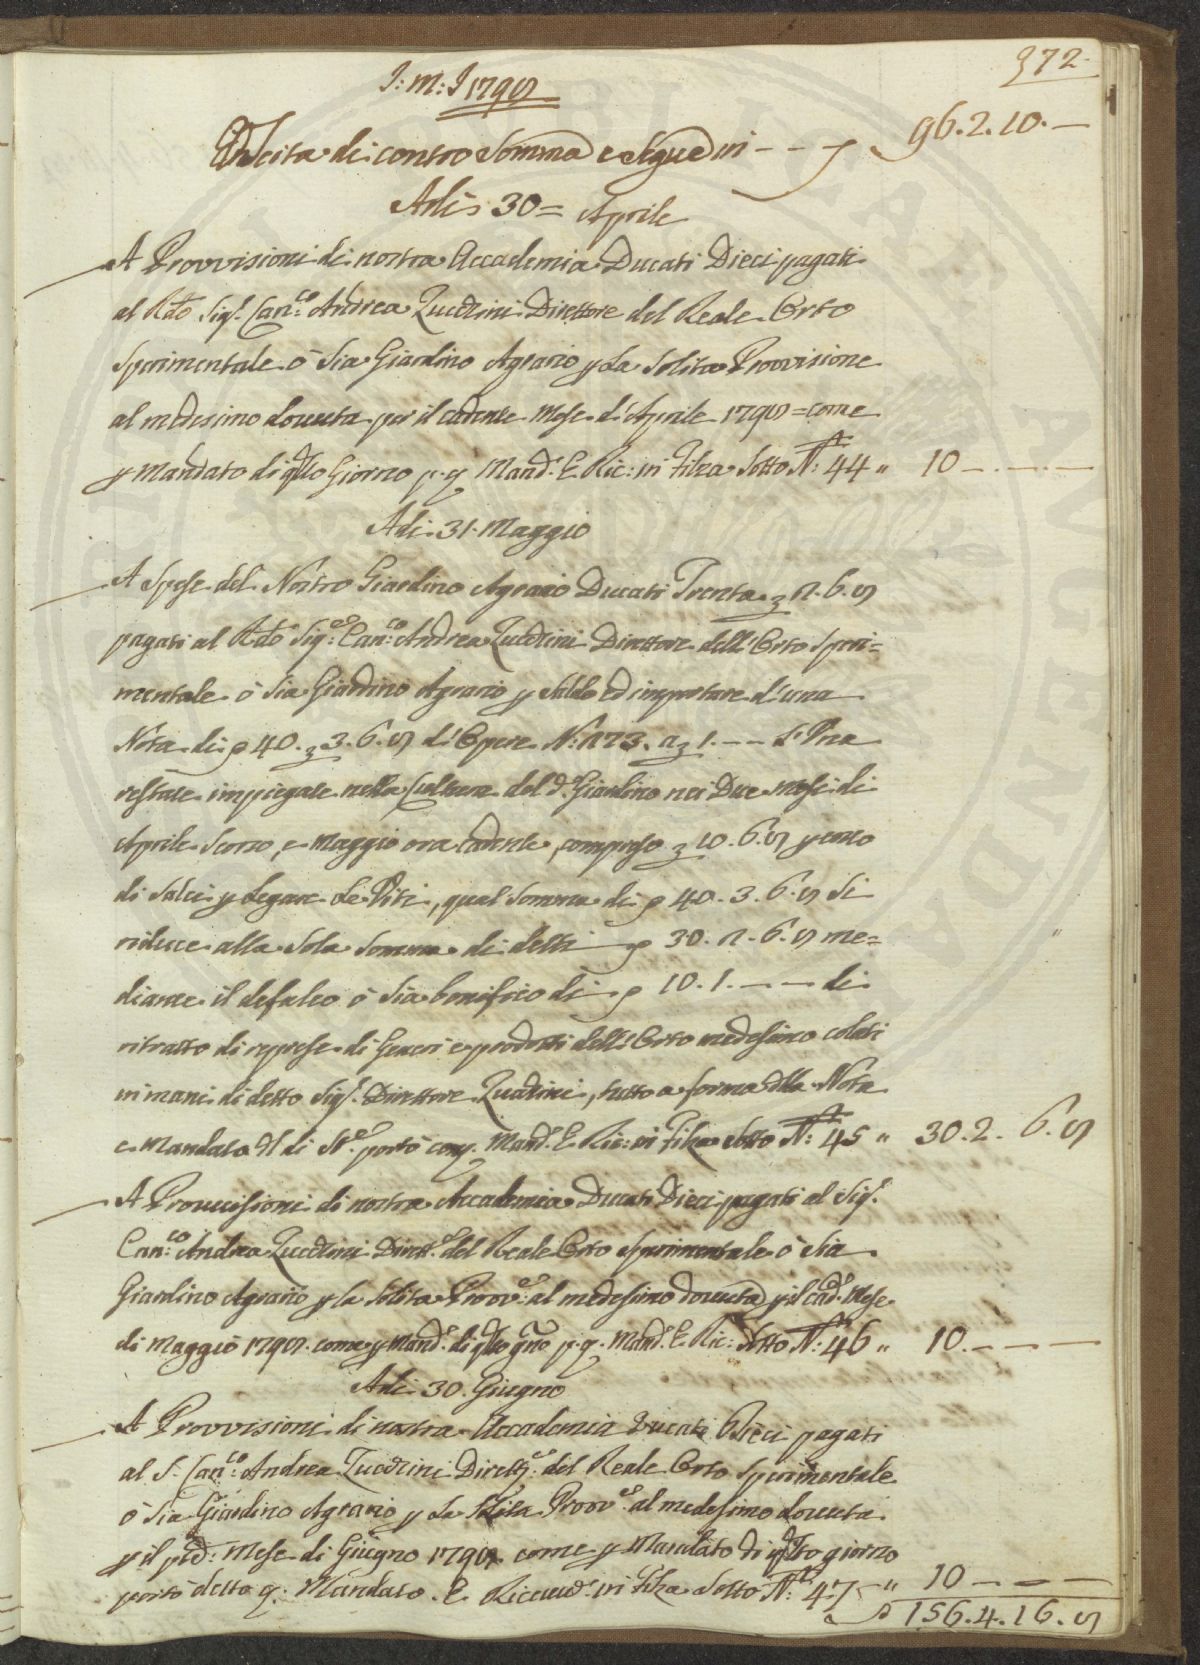 372
J: M: J 1795
Uscita di contro Somma e Segue in - - - 96.2.10.—
Adi 30 = Aprile
A Provvisioni di nostra Accademia Ducati Dieci pagati
al Rdo Sigr. Canco: Andrea Zucchini Direttore del Reale Orto
Sperimentale ò Sia Giardino Agrario p La Solita Provvisione
al medesimo dovuta per il cadente Mese d'Aprile 1795 = come
p Mandato di qsto Giorno p. q. Mand. E. Ric: in Filza Sotto N: 44 " 10 —.—.—
Adi 31 Maggio
A Spese del Nostro Giardino Agrario Ducati Trenta 2.6.5
pagati al Rdo Sigre: Canco: Andrea Zucchini Direttore dell'Orto Speri=
mentale ò Sia Giardino Agrario p Saldo ed importare d'una
Nota di 40. 3.6.5 d'Opere N: 173. a 1.— — L'Una
restate impiegate nella Cultura del do Giardino nei Due mesi di
Aprile Scorso, e Maggio ora Cadente, compreso 10.6.5 p costo
di Salci p Legare Le Viti, qual Somma di 40.3.6.5 Si
riduce alla Sola Somma di detti 30.2.6.5 me=
diante il defalco ò Sia bonifico di 10.1.— — di
ritratto di represe di Generi e prodotti dell'Orto medesimo colati
in mani di detto Sigr. Direttore Zucchini, tutto a forma della Nota
e Mandato portò con q. Mand. E. Ric: in Filza Sotto N: 45 " 30.2.6.5
A Provvisioni di nostra Accademia Ducati Dieci pagati al Sigr.
Canco: Andrea Zucchini Dirette del Reale Orto Sperimentale ò Sia
Giardino Agrario p la Solita Provve: al medesimo dovuta p il cad. Mese
di Maggio 1795. come p Mand. di qsto gno p. q. Mand. E. Ric: Sotto N: 46 " 10.— — —
Adi 30 Giugno
A Provvisioni di nostra Accademia Ducati Dieci pagati
al S. Canco: Andrea Zucchini Dirette: del Reale Orto Sperimentale
ò Sia Giardino Agrario p La Solita Provve: al medesimo dovuta
p il pred: Mese di Giugno 1795 come p Mandato di qsto giorno
portò detto q. Mandato. E. Ricevud. in Filza Sotto N: 47 — " 10 — — —
156.4.16.5